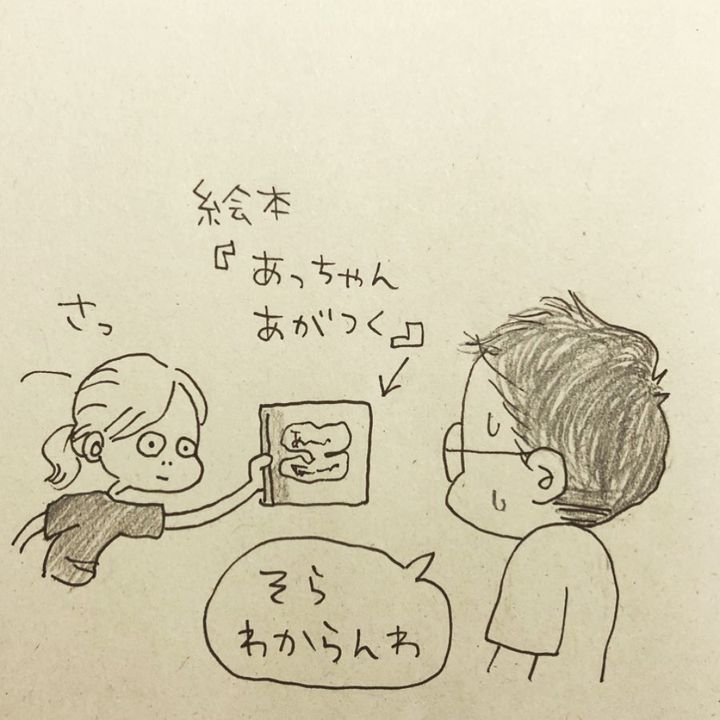 絵本
『あっちゃん
あがつく』
さっ
そら
わからんわ